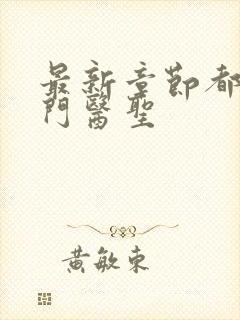 最新章節都
門醫聖
黃敏東